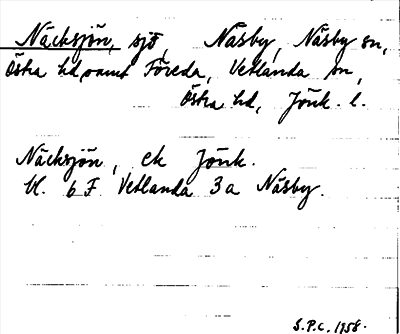 Näcksjön, sjö, Näsby, Näsby sn,
Östra hd, samt Föreda, Vetlanda sn,
Östra hd, Jönk. l.
Näcksjön, ek Jönk.
bl. 6 F Vetlanda 3 a Näsby.
S.P.C. 1958.